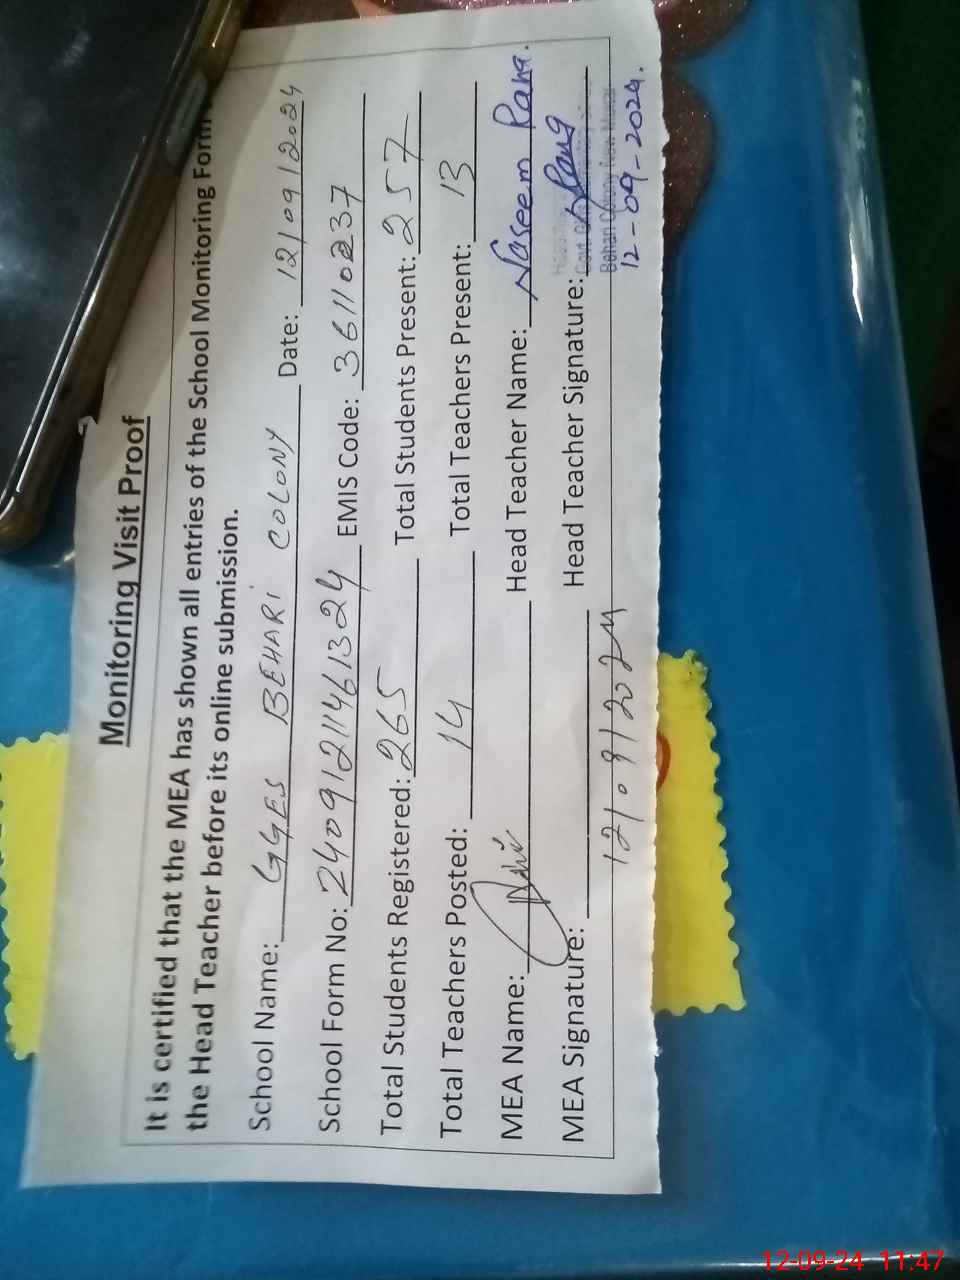 Monitoring Visit Proof
It is certified that the MEA has shown all entries of the School Monitoring Form
the Head Teacher before its online submission.
School Name: GGES BEHARI COLONY Date: 12/09/2024
School Form No: 24091211461324 EMIS Code: 36110237
Total Students Registered: 265 Total Students Present: 257
Total Teachers Posted: 14 Total Teachers Present: 13
MEA Name: Head Teacher Name: Naseem Rana.
MEA Signature: Head Teacher Signature: Rana
12/09/2024
Govt. Girls
Behari Colony
12-09-2024.
12-09-24 11:47